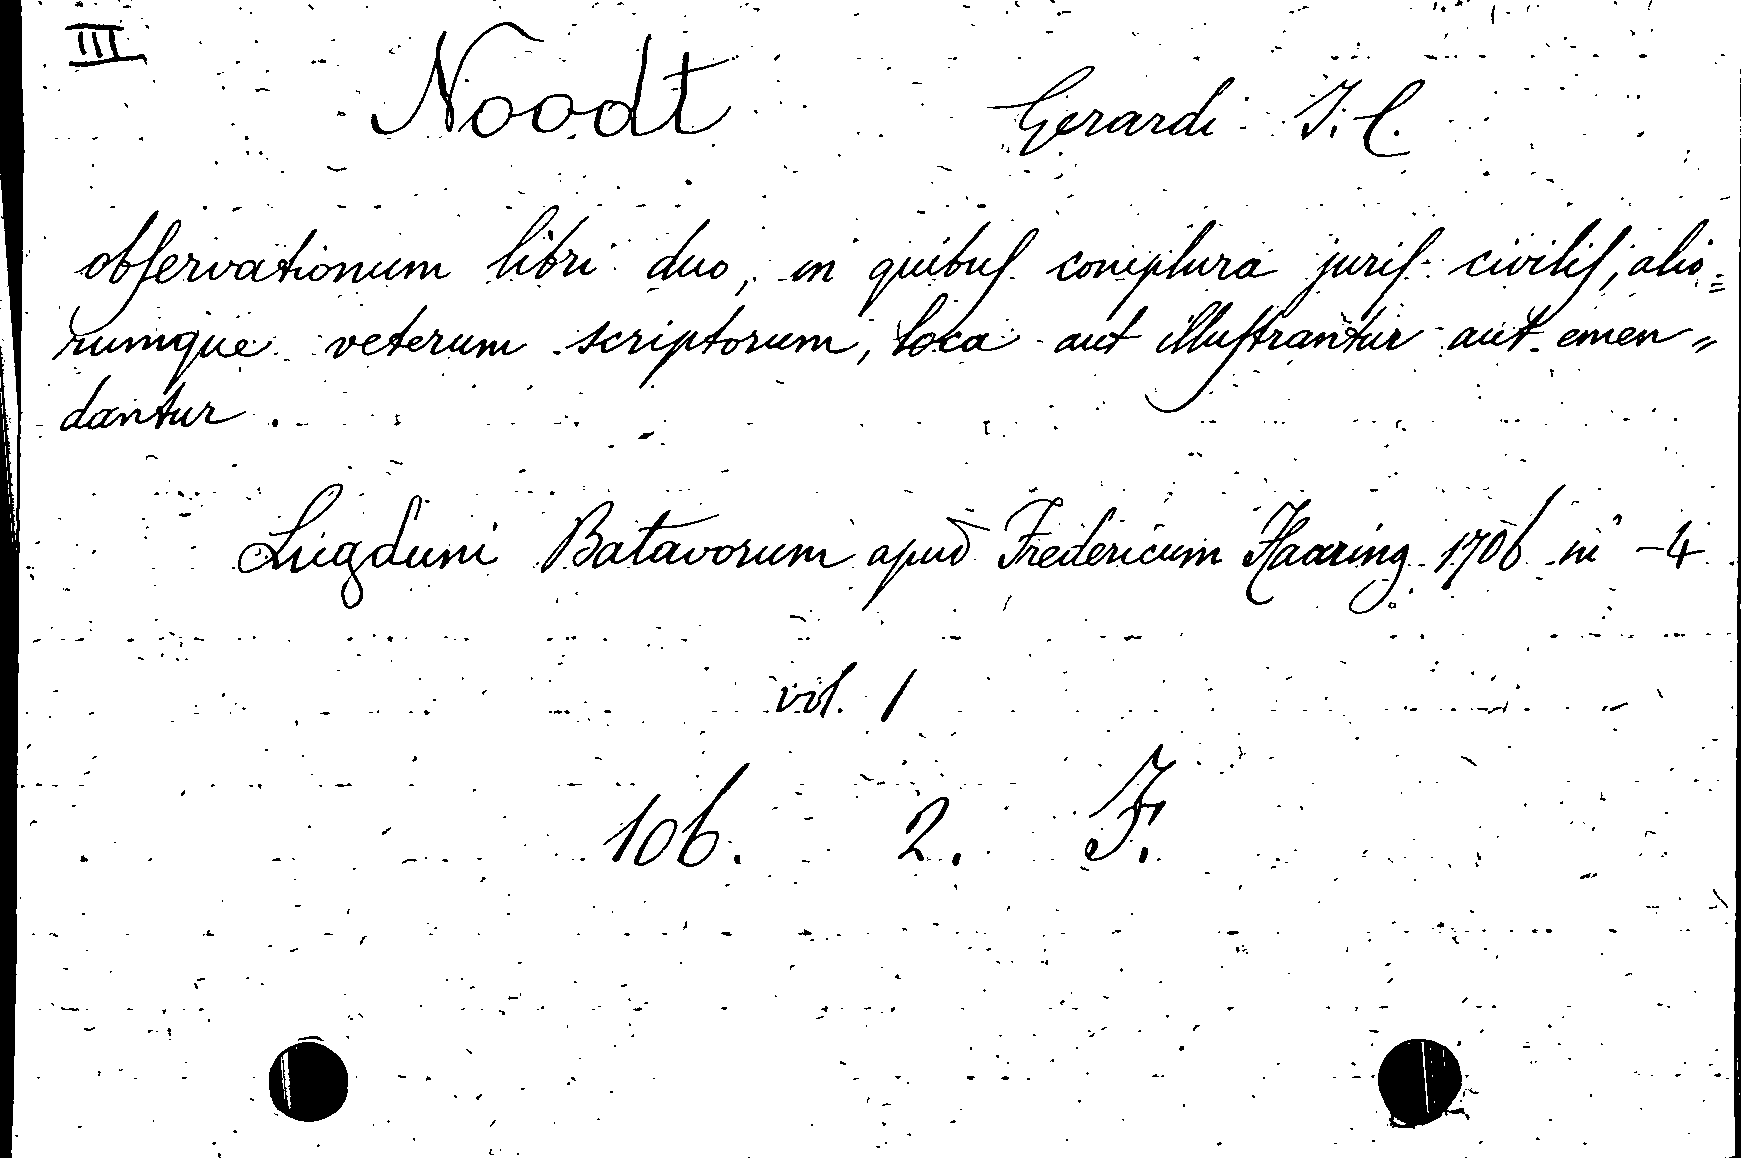 III
Noodt Gerardi J. C.
obſervationum libri duo, in quibuſ complura juriſ civiliſ, alio=
rumque veterum scriptorum, loca aut illuſtrantur aut emen„
dantur.
Lugduni Batavorum apud Fredericum Haaring 1706 in -4
vol. 1
106. 2. F.